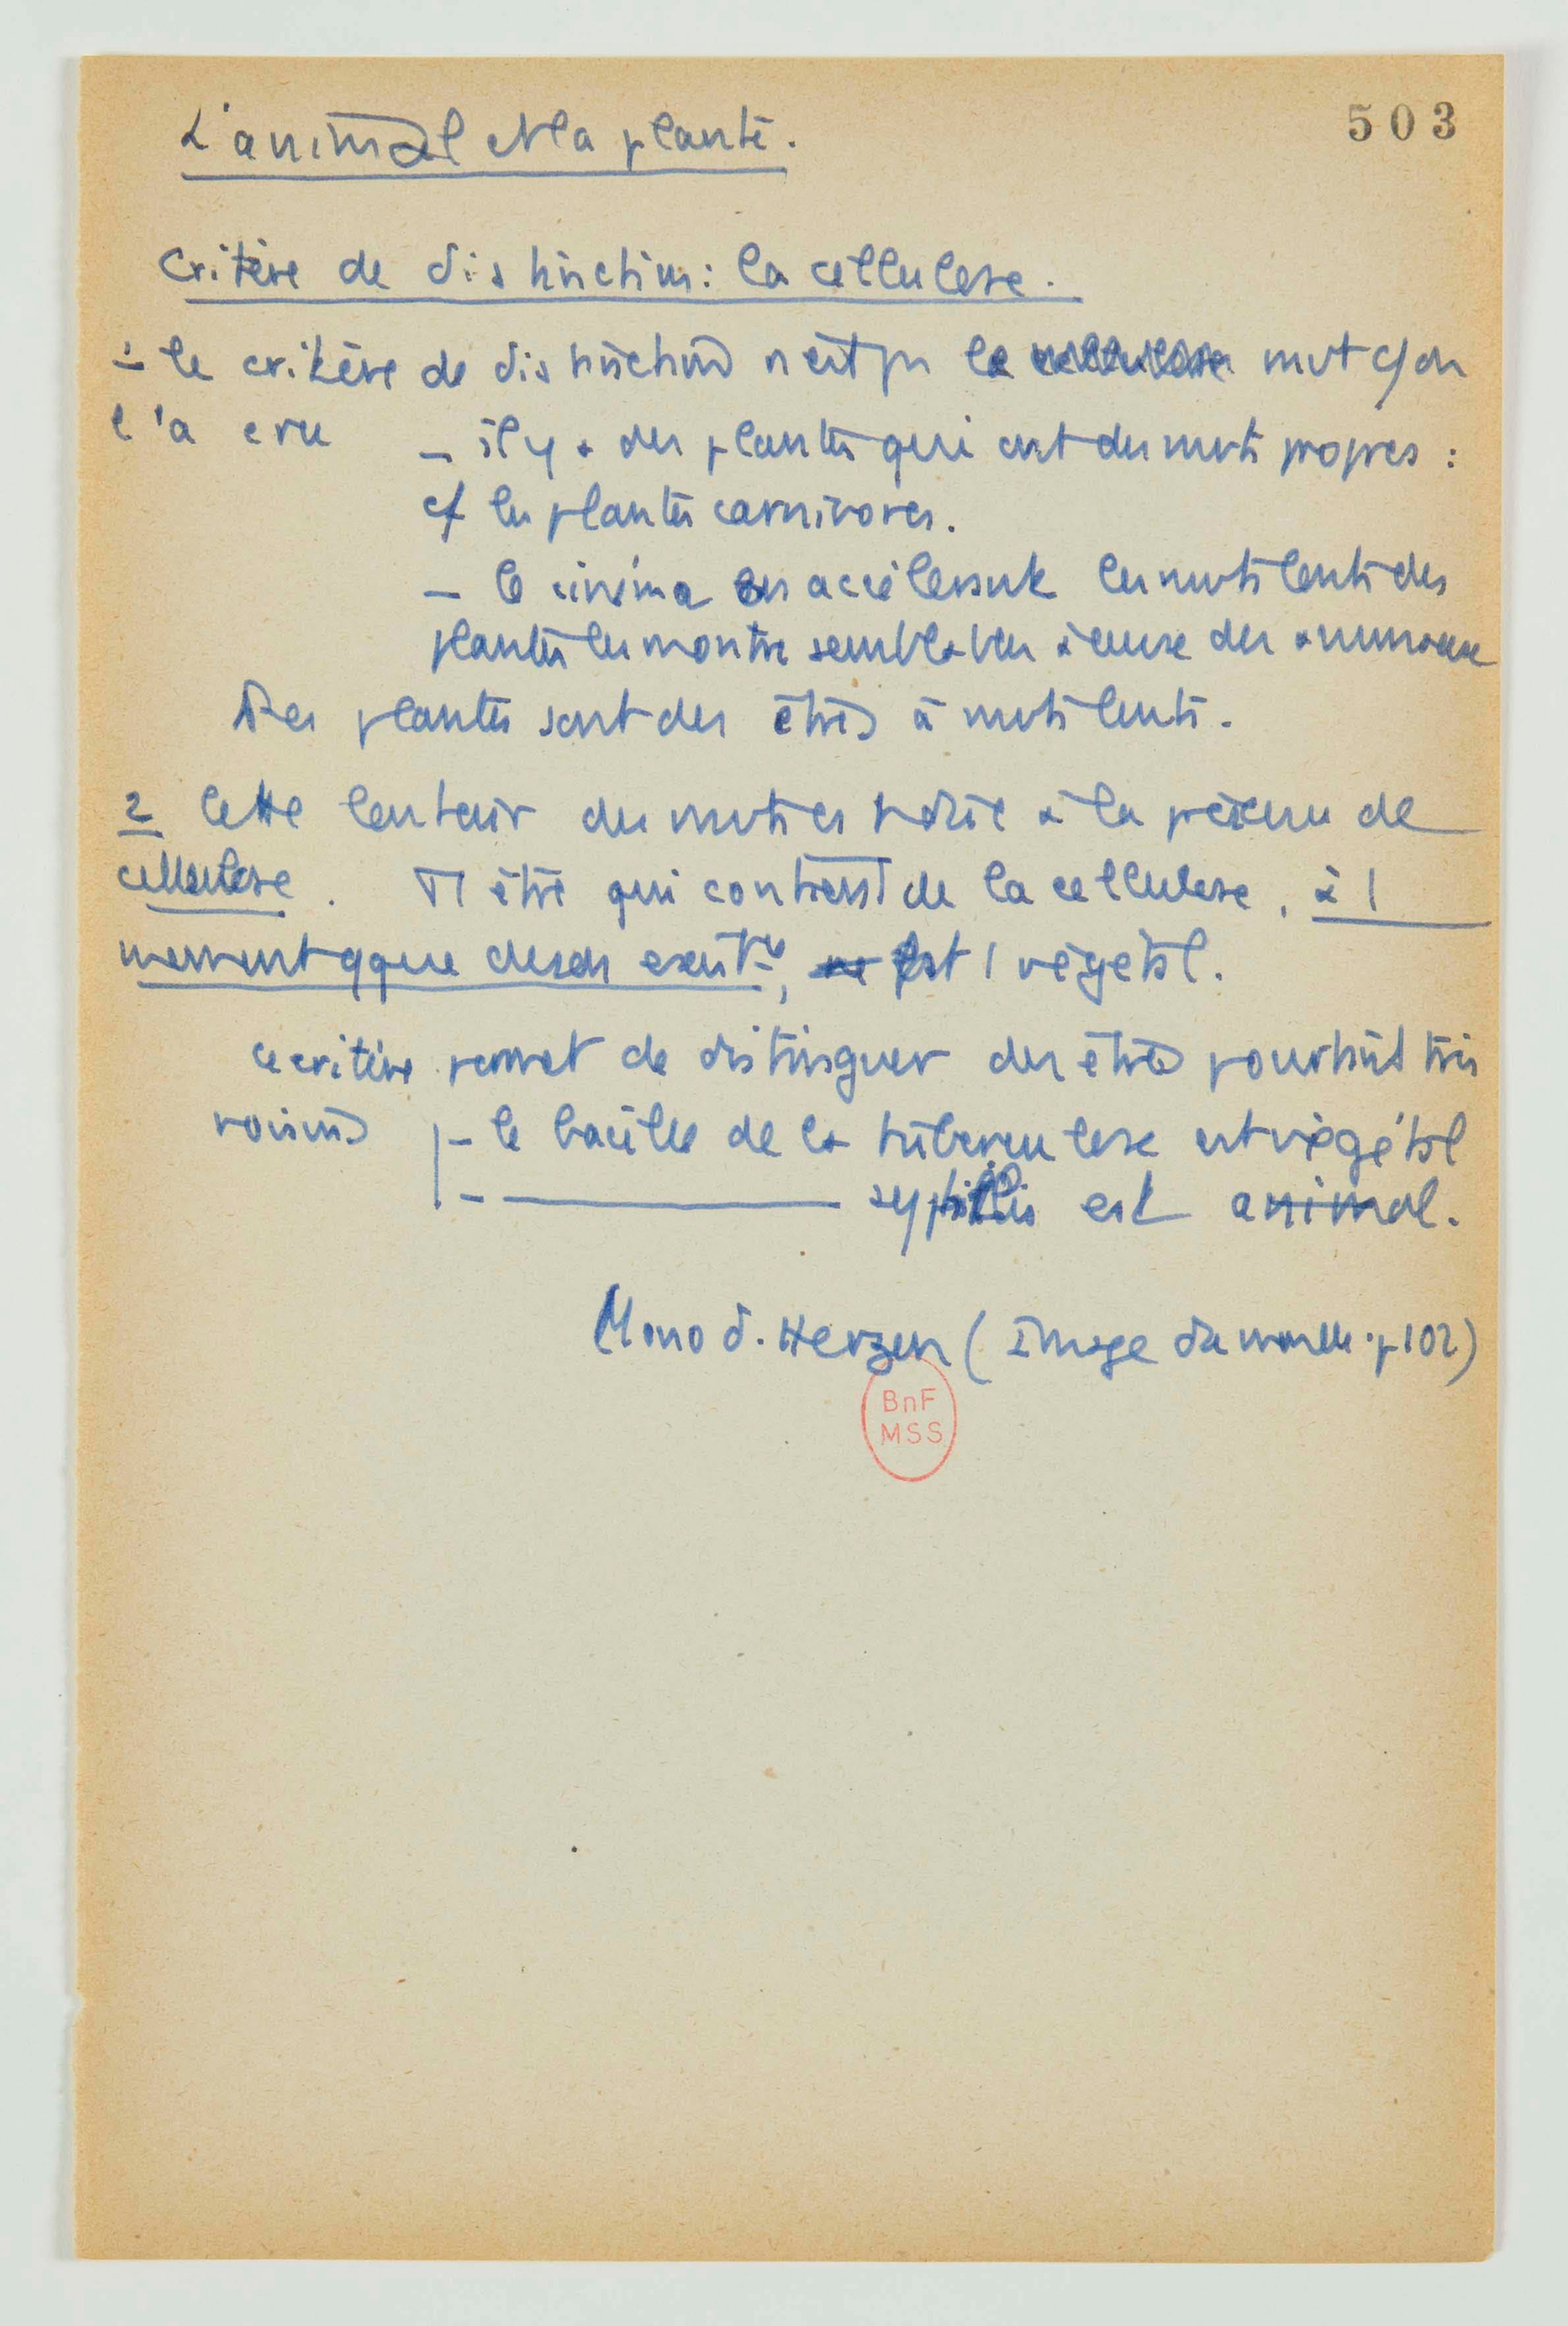 503
L'animal et la plante.
Critère de distinction : la cellulose.
1 le critère de distinction n'est pas le mvt c/ on
l'a cru – il y a des plantes qui ont des mvts propres :
cf les plantes carnivores.
– le cinéma en accélérant les mvts lents des
plantes les montre semblables à ceux des animaux
Les plantes sont des êtres à mvts lents.
2 Cette lenteur des mvts est liée à la présence de
cellulose. Tt être qui contient de la cellulose, à 1
moment qque de son existce, est 1 végétal.
ce critère permet de distinguer des êtres pourtant très
voisins – le bacille de la tuberculose est végétal
– ——— syphilis est animal.
Monod. Herzen (Image du monde. p 102)
BnF
MSS